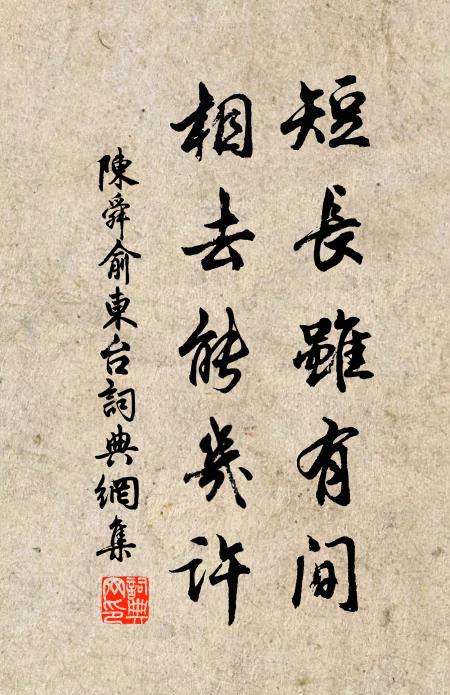 短長雖有間
相去能幾許
陳舜俞東台詞典網集
詞典網印